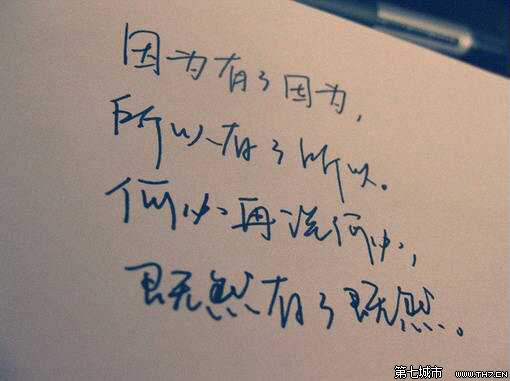 因为有了因为，
所以有了所以。
何必再说何必，
既然有了既然。
第七城市 WWW.TH7.CN